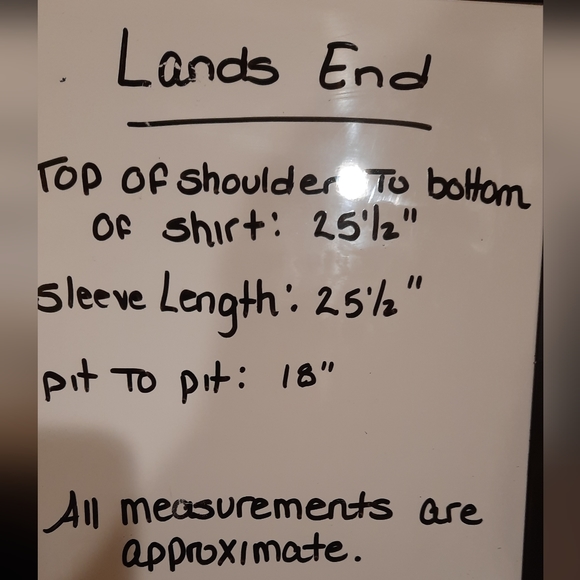 Lands End
Top of shoulder To bottom
of shirt: 25 1/2"
Sleeve Length: 25 1/2"
pit To pit: 18"
All measurements are
approximate.